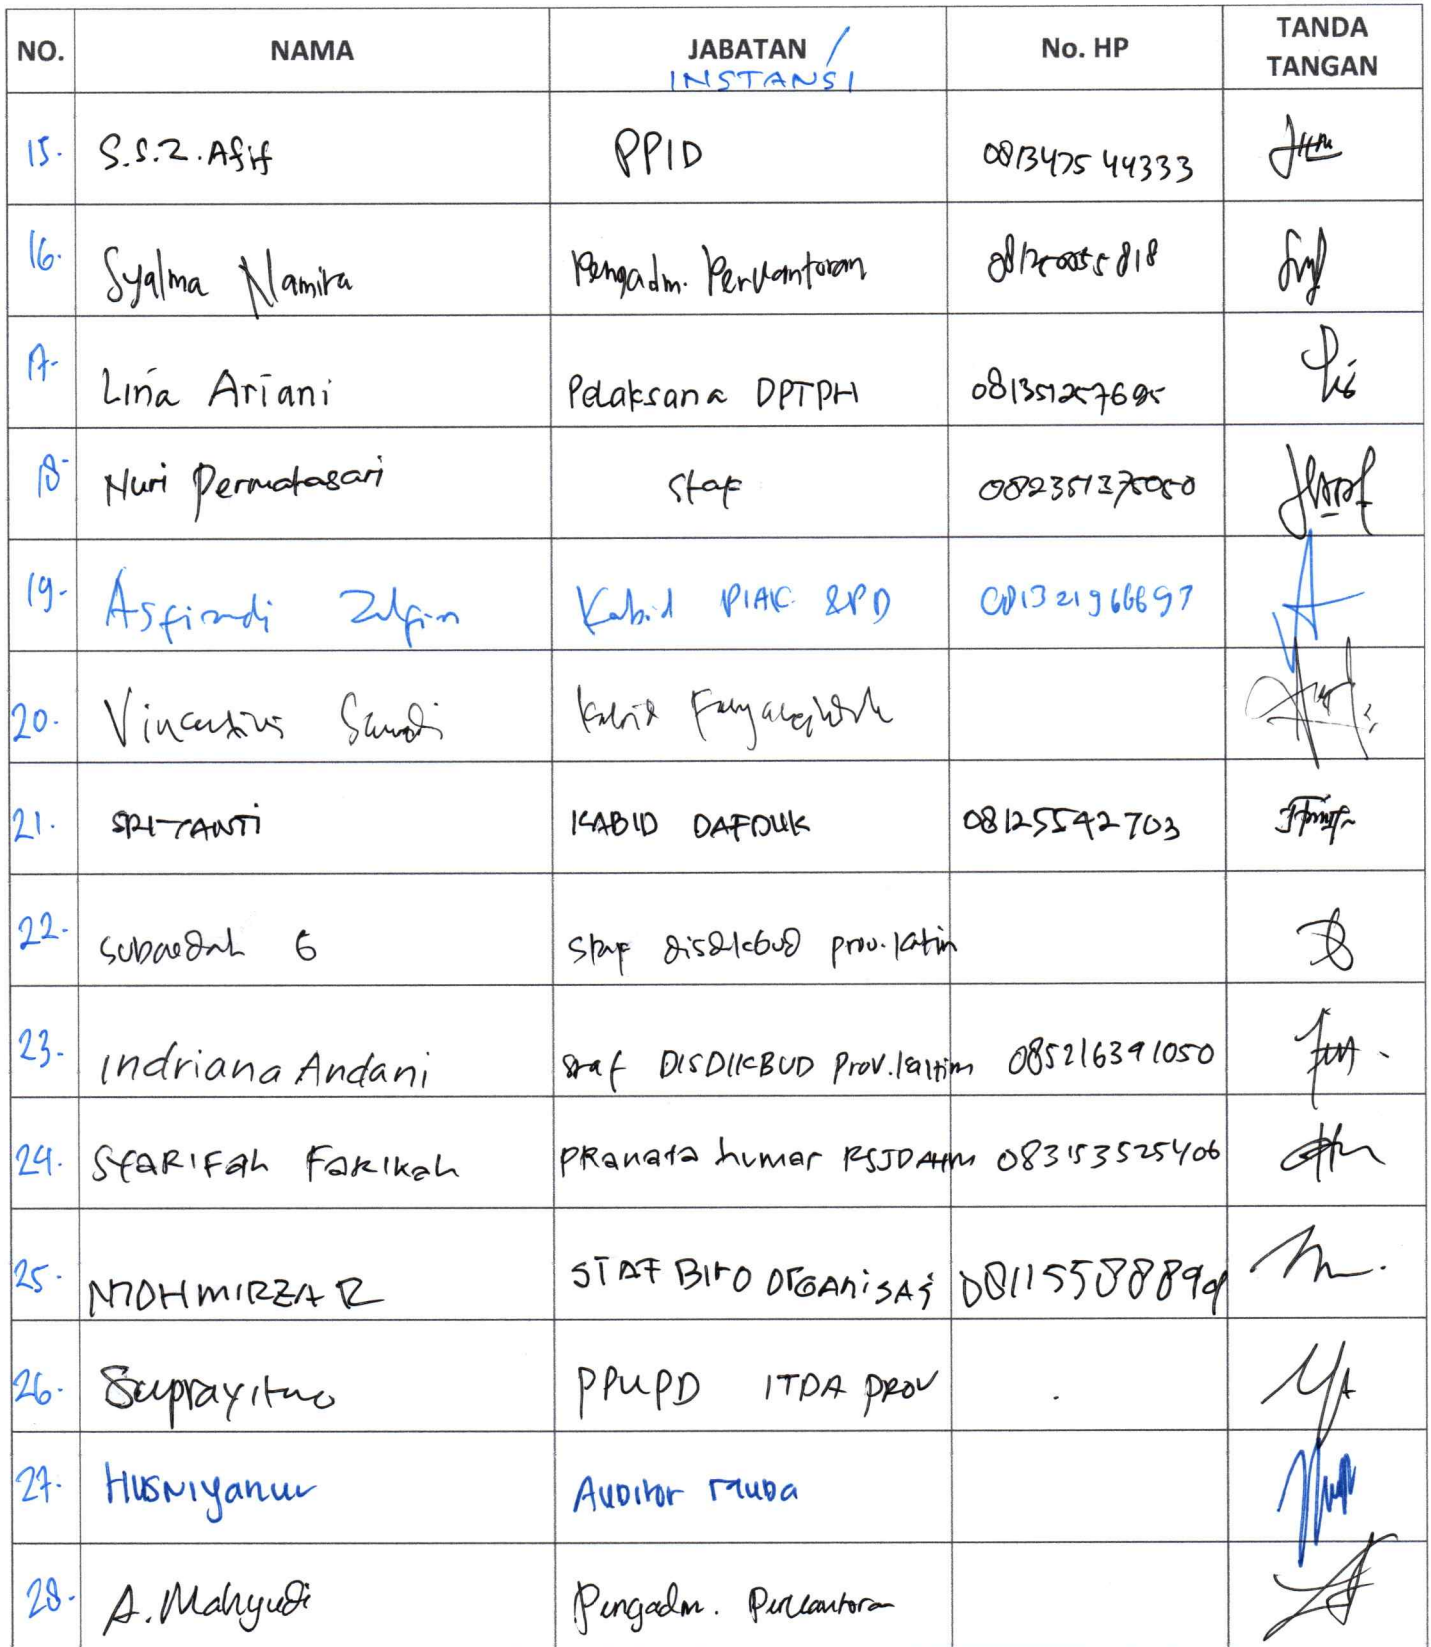 NO. NAMA JABATAN / No. HP TANDA TANGAN
INSTANSI
15. S.S.Z. Afif PPID 081347544333
16. Syalma Namira Pengadm. Perkantoran
17. Lina Ariani Pelaksana DPTPH 081351257695
18. Nuri Permatasari Staf 082351375050
19. Asfirandi Zulfin Kabid PIAK &PD 081321966697
20. Vincensius Kabid
21. SRI YANTI KABID DAFDUK 08125542703
22. Subaedah G Staf disdikbud prov. Kaltim
23. Indriana Andani Staf DISDIKBUD Prov. Kaltim 085216391050
24. SYARIFAH FARIKAH PRanata humas RSJD AHM 083153525406
25. MOH MIRZA R STAF BIRO ORGANISASI
26. Suprayitno PPUPD ITDA PROV
27. HUSNIyanur AUDITOR MUDA
28. A. Mahyudi Pengadm. Perkantoran